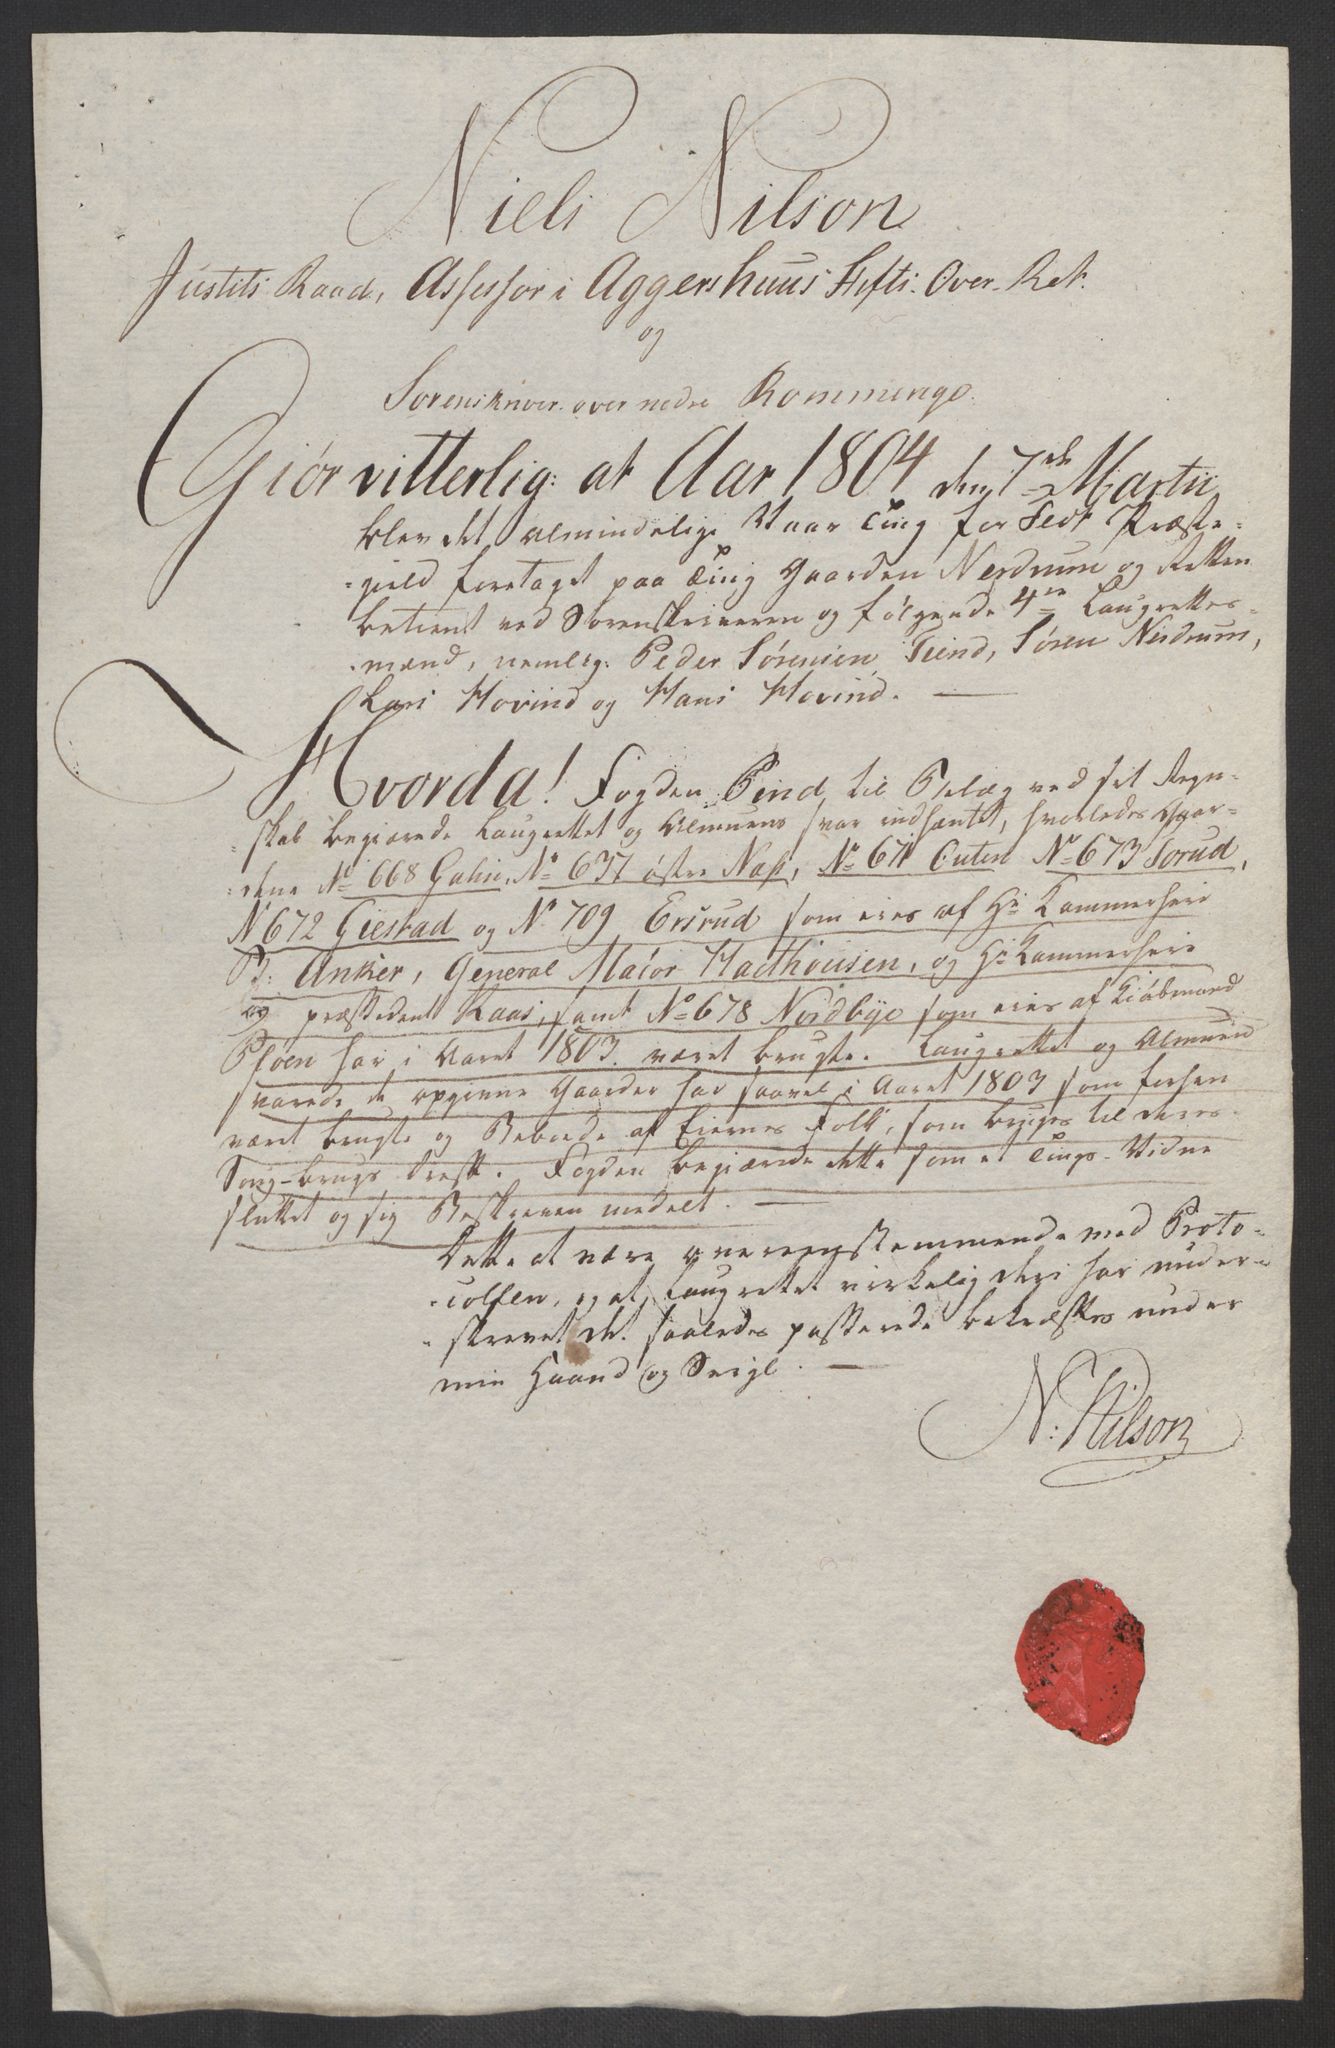 Niels Nilson
Justits Raad, Assessor i Aggershuus Stifts Over-Ret.
og
Sorenskriver over nedre Rommerige.
Giør vitterlig: at Aar 1804 den 7de Martii
blev det almindelige Vaar Ting for Fedt Præste-
-gield foretaget paa Ting Gaarden Nerdrum og Retten
betient ved Sorenskriveren og følgende 4re Laugrettes-
-mænd, nemlig: Peder Sørensen Tiend, Søren Nerdrum,
Lars Hovind og Hans Hovind. —
Hvorda! Fogden Pind til Belæg ved sit Regn-
-skab begiærede Laugrettet og Almuens svar indhæntet, hvorledes Gaar-
-dene No 668 Galsie, No 637 østre Nass, No 671 Outen No 673 Sorud,
No 672 Giestad og No 709 Ersrud som eies af Hr Kammerherr
B: Anker, General Maior Haxthousen, og Hr Kammerherr
og præsident Kaas, samt No 678 Nordbye som eies af Kiøbmand
Ploen har i Aaret 1803 været brugte. Laugrettet og Almuen
svarede de opgivne Gaarder har saavel i Aaret 1803 som forhen
været brugte og Beboede af Eiernes Folk, som bruges til deres
Saug-brugs Drift. Fogden begiærede dette som et Tings-Vidne
sluttet og sig Beskreven meddelt. —
Dette at være overeenstemmende med Proto-
-collen, og at Laugrettet virkelig deri har under-
-skrevet det saaledes passerede bekræftes under
min Haand og Seigl. —
N: Nilson